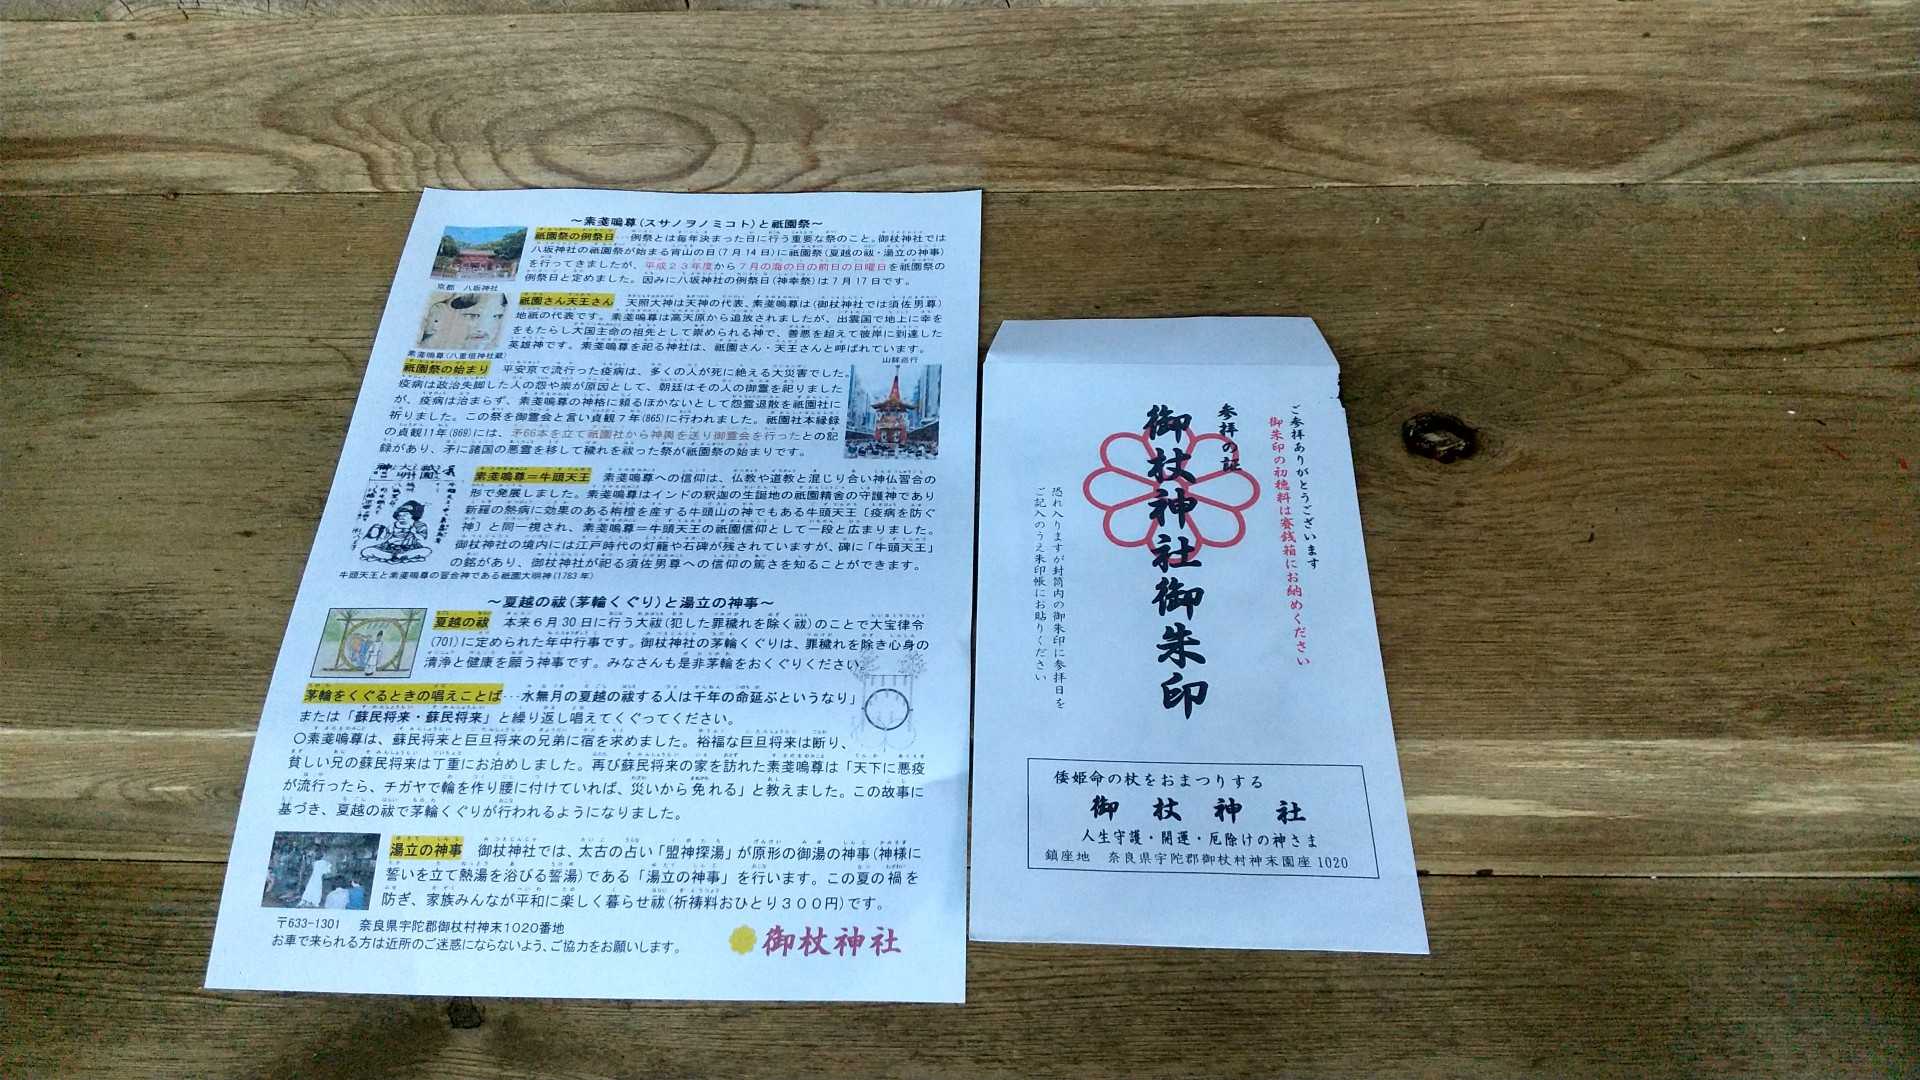 ～素戔嗚尊(スサノヲノミコト)と祇園祭～
祇園祭の例祭日…例祭とは毎年決まった日に行う重要な祭のこと。御杖神社では
八坂神社の祇園祭が始まる宵山の日(7月14日)に祇園祭(夏越の祓・湯立の神事)
を行ってきましたが、平成23年度から7月の海の日の前日の日曜日を祇園祭の
例祭日と定めました。因みに八坂神社の例祭日(神幸祭)は7月17日です。
京都 八坂神社
祇園さん天王さん 天照大神は天神の代表、素戔嗚尊は(御杖神社では須佐男尊)
地祇の代表です。素戔嗚尊は高天原から追放されましたが、出雲国で地上に幸を
をもたらし大国主命の祖先として崇められる神で、善悪を超えて彼岸に到達した
英雄神です。素戔嗚尊を祀る神社は、祇園さん・天王さんと呼ばれています。
素戔嗚尊(八重垣神社蔵)
山鉾巡行
祇園祭の始まり 平安京で流行った疫病は、多くの人が死に絶える大災害でした。
疫病は政治失脚した人の怨や祟が原因として、朝廷はその人の御霊を祀りました
が、疫病は治まらず、素戔嗚尊の神格に頼るほかないとして怨霊退散を祇園社に
祈りました。この祭を御霊会と言い貞観7年(865)に行われました。祇園社本縁録
の貞観11年(869)には、矛66本を立て祇園社から神輿を送り御霊会を行ったとの記
録があり、矛に諸国の悪霊を移して穢れを祓った祭が祇園祭の始まりです。
素戔嗚尊＝牛頭天王 素戔嗚尊への信仰は、仏教や道教と混じり合い神仏習合の
形で発展しました。素戔嗚尊はインドの釈迦の生誕地の祇園精舎の守護神であり
新羅の熱病に効果のある栴檀を産する牛頭山の神でもある牛頭天王〔疫病を防ぐ
神〕と同一視され、素戔嗚尊＝牛頭天王の祇園信仰として一段と広まりました。
御杖神社の境内には江戸時代の灯籠や石碑が残されていますが、碑に「牛頭天王」
の銘があり、御杖神社が祀る須佐男尊への信仰の篤さを知ることができます。
牛頭天王と素戔嗚尊の習合神である祇園大明神(1783年)
～夏越の祓(茅輪くぐり)と湯立の神事～
夏越の祓 本来6月30日に行う大祓(犯した罪穢れを除く祓)のことで大宝律令
(701)に定められた年中行事です。御杖神社の茅輪くぐりは、罪穢れを除き心身の
清浄と健康を願う神事です。みなさんも是非茅輪をおくぐりください。
茅輪をくぐるときの唱えことば…水無月の夏越の祓する人は千年の命延ぶというなり」
または「蘇民将来・蘇民将来」と繰り返し唱えてくぐってください。
〇素戔嗚尊は、蘇民将来と巨旦将来の兄弟に宿を求めました。裕福な巨旦将来は断り、
貧しい兄の蘇民将来は丁重にお泊めしました。再び蘇民将来の家を訪れた素戔嗚尊は「天下に悪疫
が流行ったら、チガヤで輪を作り腰に付けていれば、災いから免れる」と教えました。この故事に
基づき、夏越の祓で茅輪くぐりが行われるようになりました。
湯立の神事 御杖神社では、太古の占い「盟神探湯」が原形の御湯の神事(神様に
誓いを立て熱湯を浴びる誓湯)である「湯立の神事」を行います。この夏の禍を
防ぎ、家族みんなが平和に楽しく暮らせ祓(祈祷料おひとり300円)です。
〒633-1301 奈良県宇陀郡御杖村神末1020番地
お車で来られる方は近所のご迷惑にならないよう、ご協力をお願いします。
御杖神社
ご参拝ありがとうございます
御朱印の初穂料は賽銭箱にお納めください
参拝の証
御杖神社御朱印
恐れ入りますが封筒内の御朱印に参拝日を
ご記入のうえ朱印帳にお貼りください
倭姫命の杖をおまつりする
御杖神社
人生守護・開運・厄除けの神さま
鎮座地 奈良県宇陀郡御杖村神末園座1020